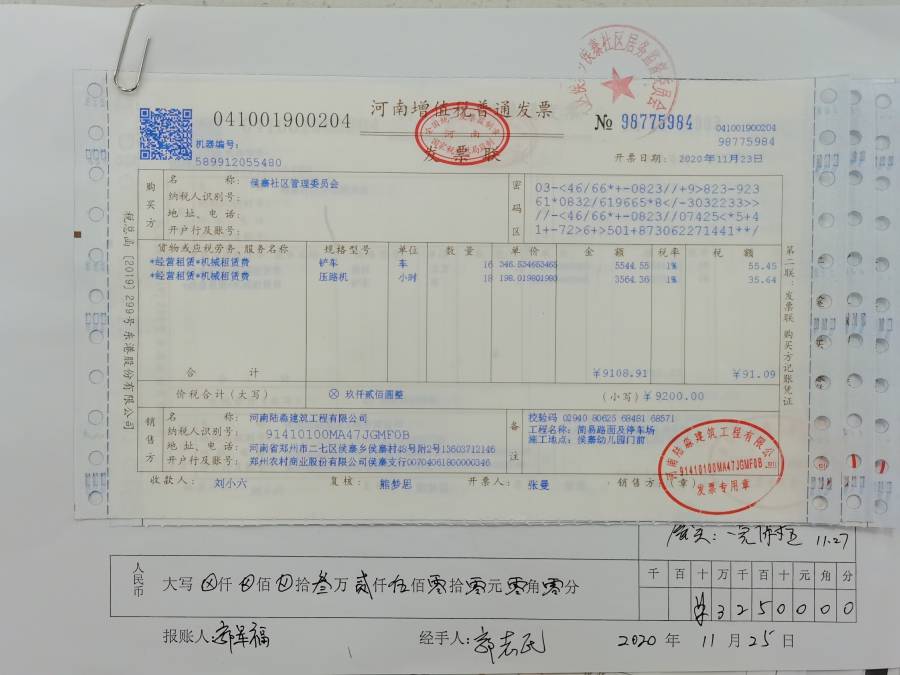 河南增值税普通发票
041001900204
№ 98775984
041001900204
98775984
机器编号：
589912055480
发票联
开票日期： 2020年11月23日
购买方
名 称： 侯寨社区管理委员会
纳税人识别号：
地 址、电 话：
开户行及账号：
密码区
03-<46/66*+-0823//+9>823-923
61*0832/619665*8</-3032233>>
//-<46/66*+-0823//07425<*5+4
1+-72>6+>501+873062271441**/
货物或应税劳务、服务名称 规格型号 单位 数 量 单 价 金 额 税率 税 额
*经营租赁*机械租赁费 铲车 车 16 346.534653465 5544.55 1% 55.45
*经营租赁*机械租赁费 压路机 小时 18 198.019801980 3564.36 1% 35.64
合 计 ￥9108.91 ￥91.09
价税合计（大写） ⊗ 玖仟贰佰圆整 （小写）￥9200.00
销售方
名 称： 河南陆淼建筑工程有限公司
纳税人识别号： 91410100MA47JGMF0B
地 址、电 话： 河南省郑州市二七区侯寨乡侯寨村48号附2号13603712146
开户行及账号： 郑州农村商业股份有限公司侯寨支行00704061800000346
备注
校验码 02940 80625 68481 68571
工程名称：简易路面及停车场
施工地点：侯寨幼儿园门前
收款人： 刘小六 复核： 熊梦思 开票人： 张曼 销售方：（章）
税总函〔2019〕299号东港股份有限公司
第二联：发票联 购买方记账凭证
河南陆淼建筑工程有限公司
91410100MA47JGMF0B
发票专用章
11.27
人民币
大写 ⊗仟⊗佰⊗拾叁万贰仟伍佰零拾零元零角零分
千 百 十 万 千 百 十 元 角 分
¥ 3 2 5 0 0 0 0
报账人： 经手人： 2020 年 11 月 25 日